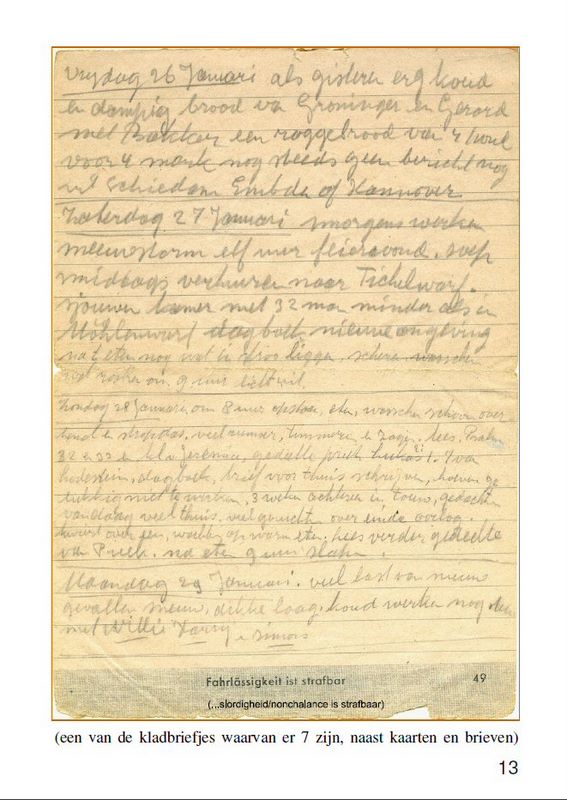 Vrijdag 26 Januari als gisteren erg koud
en dampig brood van Groninger en Gerard
met Bakker een roggebrood van
voor 4 mark nog steeds geen bericht nog
uit Schiedam Embden of Hannover
Zaterdag 27 Januari smorgens werken
elf uur feieravond. soep
smiddags verhuizen naar Tichelwarf.
kamer met 32 man minder als in
Möhlenwarf dagboek nieuwe omgeving
na eten nog wat in stroo liggen, scheren wasschen
9 uur licht uit.
Zondag 28 Januari, om 8 uur opstaan, eten, wasschen schoon over
hemd en stropdas, veel timmeren en zagen. lees Psalm
32 en 33 en Jeremia, gedeelte preek van
dagboek, brief voor thuis schrijven, hoeven ge
lukkig niet te werken, 3 weken achtereen in touw, gedachten
vandaag veel thuis. veel geruchten over einde oorlog.
wachten op warm eten, lees verder gedeelte
van Preek. na eten 9 uur slapen.
Maandag 29 Januari. veel last van nieuw
gevallen sneeuw, dikke laag, koud werken nog
met Willie Harry en Simons
Fahrlässigkeit ist strafbar 49
(...slordigheid/nonchalance is strafbaar)
(een van de kladbriefjes waarvan er 7 zijn, naast kaarten en brieven)
13